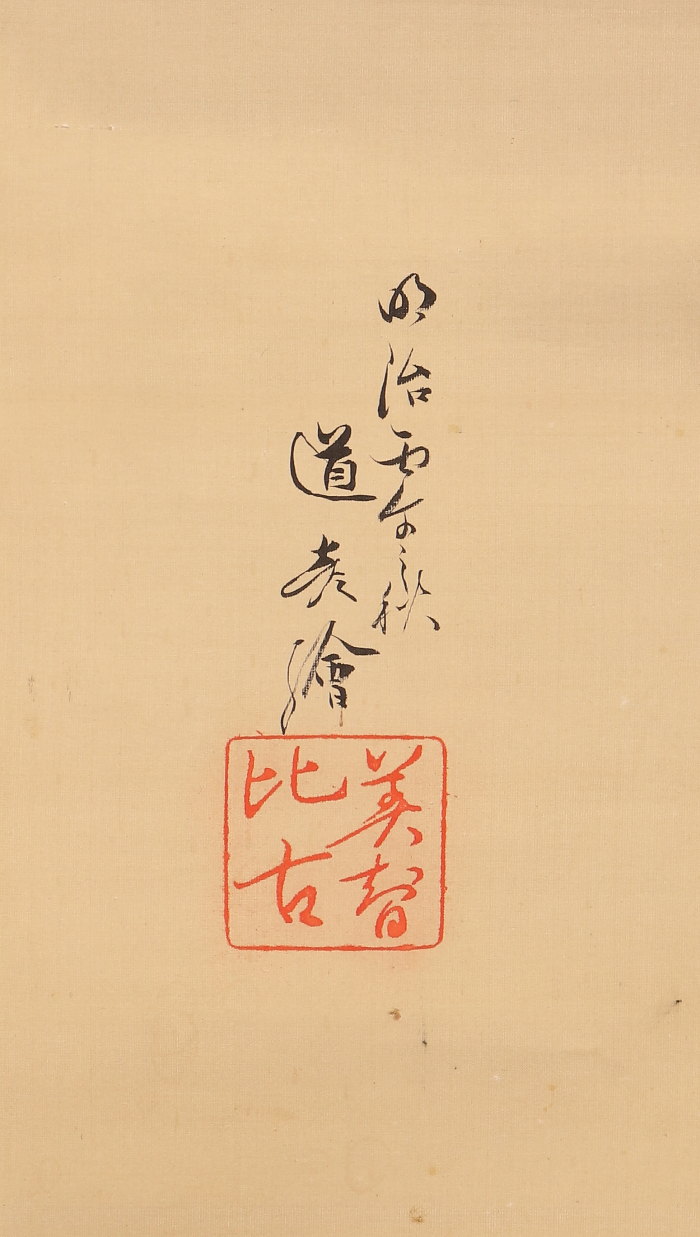 明治丙午之秋
道彦繪
美智
比古